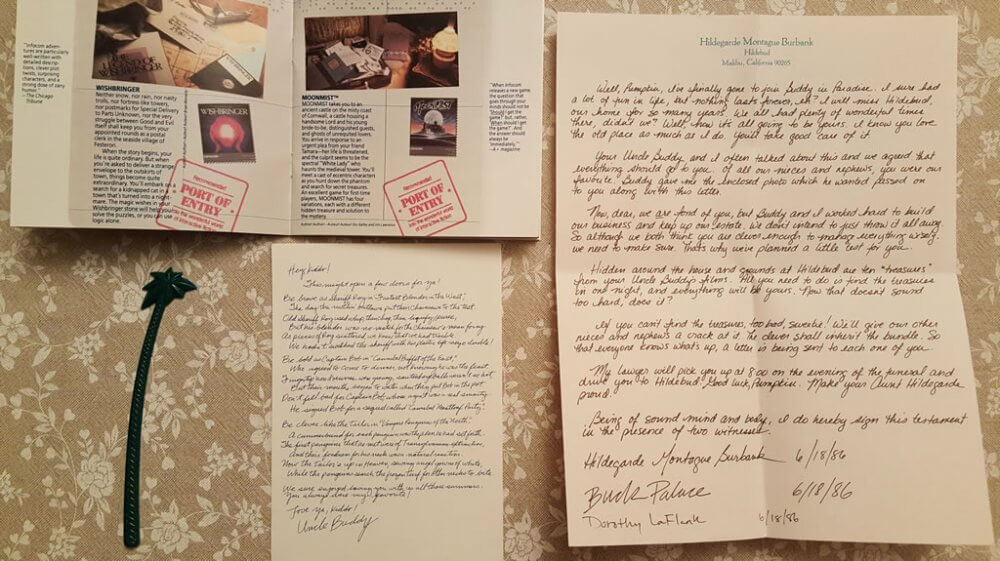 "Infocom adven-
tures are particularly
well-written with
detailed descrip-
tions, clever plot
twists, surprising
characters, and a
strong dose of zany
humor."
—The Chicago
Tribune
WISHBRINGER
Neither snow, nor rain, nor nasty
trolls, nor fortress-like towers,
nor postmarks for Special Delivery
to Parts Unknown, nor the very
struggle between Good and Evil
itself shall keep you from your
appointed rounds as a postal
clerk in the seaside village of
Festeron.
When the story begins, your
life is quite ordinary. But when
you're asked to deliver a strange
envelope to the outskirts of
town, things become quite
extraordinary. You'll embark on a
search for a kidnapped cat in a
town that's turned into a night-
mare. The magic wishes in your
Wishbringer stone will help you
solve the puzzles, or you can use
logic alone.
WISHBRINGER
Recommended
PORT OF
ENTRY
into the wonderful world
of interactive fiction!
MOONMIST™
MOONMIST takes you to an
ancient castle on the misty coast
of Cornwall, a castle hosting a
handsome Lord and his young
bride-to-be, distinguished guests,
and ghosts of unrequited lovers.
You arrive in response to an
urgent plea from your friend
Tamara—her life is threatened,
and the culprit seems to be the
spectral "White Lady" who
haunts the medieval tower. You'll
meet a cast of eccentric characters
as you hunt down the phantom
and search for secret treasures.
An excellent game for first-time
players, MOONMIST has four
variations, each with a different
hidden treasure and solution to
the mystery.
MOONMIST
Recommended
PORT OF
ENTRY
into the wonderful world
of interactive fiction!
"When Infocom
releases a new game,
the question that
goes through your
minds should not be
'Should I get the
game?', but, rather,
'When should I get
the game?'. And
the answer should
always be
'immediately.'"
—A+ magazine
Hey, Kiddo!
This might open a few doors for ya!
Be brave as Sheriff Roy in "Fastest Blender in the West,"
The day the
Old Sheriff Roy used
But his blender was no match for the
As pieces of Roy scattered, we knew that
We hadn't
Be bold as Captain Bob in "Cannibal Buffet of the East,"
Who agreed to come to dinner, not knowing he was the feast.
Don't feel bad for Captain Bob, whose
He signed Bob for a sequel called "Cannibal Leftover Party."
Be clever like the tailor in "Vampire Penguins of the North."
The first penguins that
Now the tailor's up in heaven, sewing angel gowns of white,
While the penguins search the frozen turf for other necks to bite.
We sure enjoyed having you with us all those summers.
You always were my favorite!
Love ya, Kiddo!
Uncle Buddy
Hildegarde Montague Burbank
Hildebud
Malibu, California 90265
Well, Pumpkin, I've finally gone to join Buddy in Paradise. I sure had
a lot of fun in life, but nothing lasts forever, eh? I will miss Hildebud,
our home for so many years. We all had plenty of wonderful times
there, didn't we? Well, now it's all going to be yours. I know you love
the old place as much as I do. You'll take good care of it.
Your Uncle Buddy and I often talked about this and we agreed that
everything should go to you. Of all our nieces and nephews, you were our
favorite. Buddy gave me the enclosed photo which he wanted passed on
to you along with this letter.
Now, dear, we are fond of you, but Buddy and I worked hard to build
our business and keep up our estate. We don't intend to just throw it all away.
So although we both think you are clever enough to manage everything wisely,
we need to make sure. That's why we've planned a little test for you.
Hidden around the house and grounds at Hildebud are ten "treasures"
from your Uncle Buddy's films. All you need to do is find the treasures
in one night, and everything will be yours. Now that doesn't sound
too hard, does it?
If you can't find the treasures, too bad, sweetie! We'll give our other
nieces and nephews a crack at it. The clever shall inherit the bundle. So
that everyone knows what's up, a letter is being sent to each one of you.
My lawyer will pick you up at 8:00 on the evening of the funeral and
drive you to Hildebud. Good luck, Pumpkin. Make your Aunt Hildegarde
proud.
Being of sound mind and body, I do hereby sign this testament
in the presence of two witnesses.
Hildegarde Montague Burbank 6/18/86
Buck Palace 6/18/86
Dorothy LaFlank 6/18/86